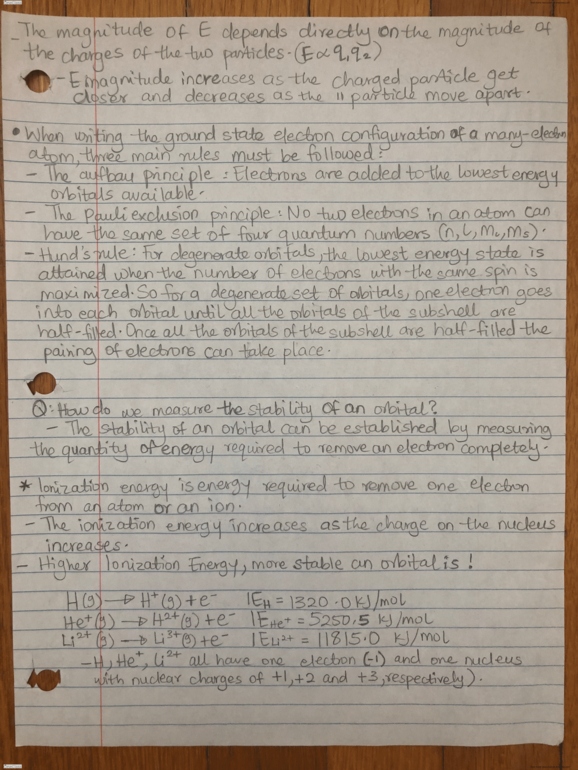 - The magnitude of E depends directly on the magnitude of
the charges of the two particles. (E∝q₁q₂)
- E magnitude increases as the charged particle get
closer and decreases as the " particle move apart.
• When writing the ground state electron configuration of a many-electron
atom, three main rules must be followed:
- The aufbau principle : Electrons are added to the lowest energy
orbitals available.
- The Pauli exclusion principle : No two electrons in an atom can
have the same set of four quantum numbers (n, l, mₗ, mₛ).
- Hund's rule : For degenerate orbitals, the lowest energy state is
attained when the number of electrons with the same spin is
maximized. So for a degenerate set of orbitals, one electron goes
into each orbital until all the orbitals of the subshell are
half-filled. Once all the orbitals of the subshell are half-filled the
pairing of electrons can take place.
Q: How do we measure the stability of an orbital?
- The stability of an orbital can be established by measuring
the quantity of energy required to remove an electron completely.
* Ionization energy is energy required to remove one electron
from an atom or an ion.
- The ionization energy increases as the charge on the nucleus
increases.
- Higher Ionization Energy, more stable an orbital is !
H(g) → H⁺(g) + e⁻ IE_H = 1320.0 kJ/mol
He⁺(g) → H²⁺(g) + e⁻ IE_He⁺ = 5250.5 kJ/mol
Li²⁺(g) → Li³⁺(g) + e⁻ IE_Li²⁺ = 11815.0 kJ/mol
- H, He⁺, Li²⁺ all have one electron (-1) and one nucleus
with nuclear charges of +1, +2 and +3, respectively).